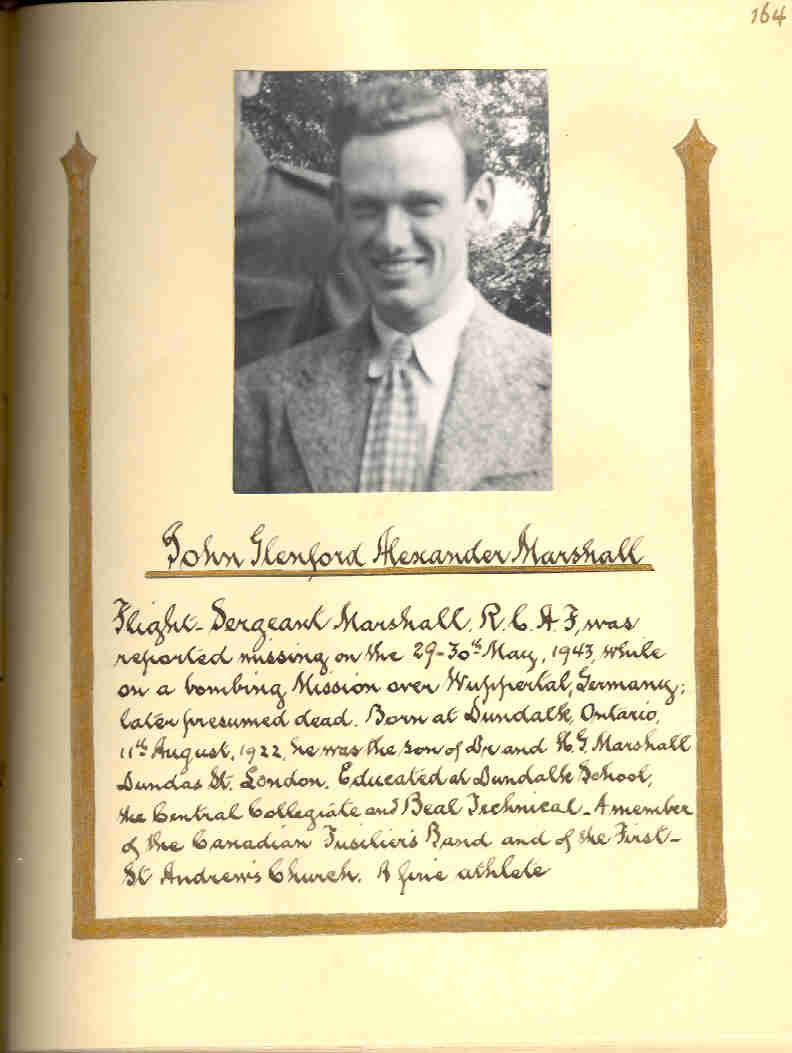 164
John Glenford Alexander Marshall
Flight-Sergeant Marshall, R.C.A.F, was
reported missing on the 29-30th May, 1943, while
on a bombing Mission over Wuppertal, Germany;
later presumed dead. Born at Dundalk, Ontario,
11th August, 1922, he was the son of Dr and H.G. Marshall
Dundas St. London. Educated at Dundalk School,
the Central Collegiate and Beal Technical - A member
of the Canadian Fusiliers Band and of the First-
St Andrew's Church. A fine athlete